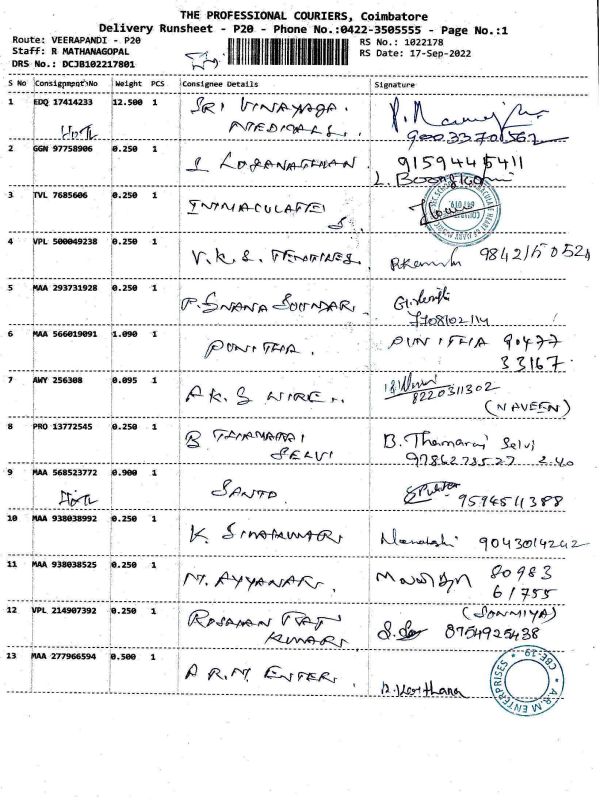 THE PROFESSIONAL COURIERS, Coimbatore
Delivery Runsheet - P20 - Phone No.:0422-3505555 - Page No.:1
Route: VEERAPANDI - P20
RS No.: 1022178
Staff: R MATHANAGOPAL
RS Date: 17-Sep-2022
DRS No.: DCJB102217801
S No Consignment No Weight PCS Consignee Details Signature
1 EDQ 17414233 12.500 1 SRI VINAYAGA
MEDICALS.
2 GGN 97758906 0.250 1 LOGANATHAN 9159445411
3 TVL 7685606 0.250 1 IMMACULATE
S.
4 VPL 500049238 0.250 1 V.K.S. TEXTILES.
5 MAA 293731928 0.250 1 P. GNANA SOUNDARI
6 MAA 566019091 1.090 1 PUNITHA. PUNITHA 90477
33167
7 AWY 256308 0.095 1 A.K.S WIRE
8220311302
(NAVEEN)
8 PRO 13772545 0.250 1 B THAMARAI B. Thamarai Selvi
SELVI
9 MAA 568523772 0.900 1 SANTO 9594511388
10 MAA 938038992 0.250 1 K. SIVAKUMAR 9043014242
11 MAA 938038525 0.250 1 M. AYYANAR. 80983
61755
12 VPL 214907392 0.250 1 RAJ (SONMIYA)
KUMAR 8754925438
13 MAA 277966594 0.500 1 A R.M. ENTER.
A.R.M ENTERPRISES CBE-19